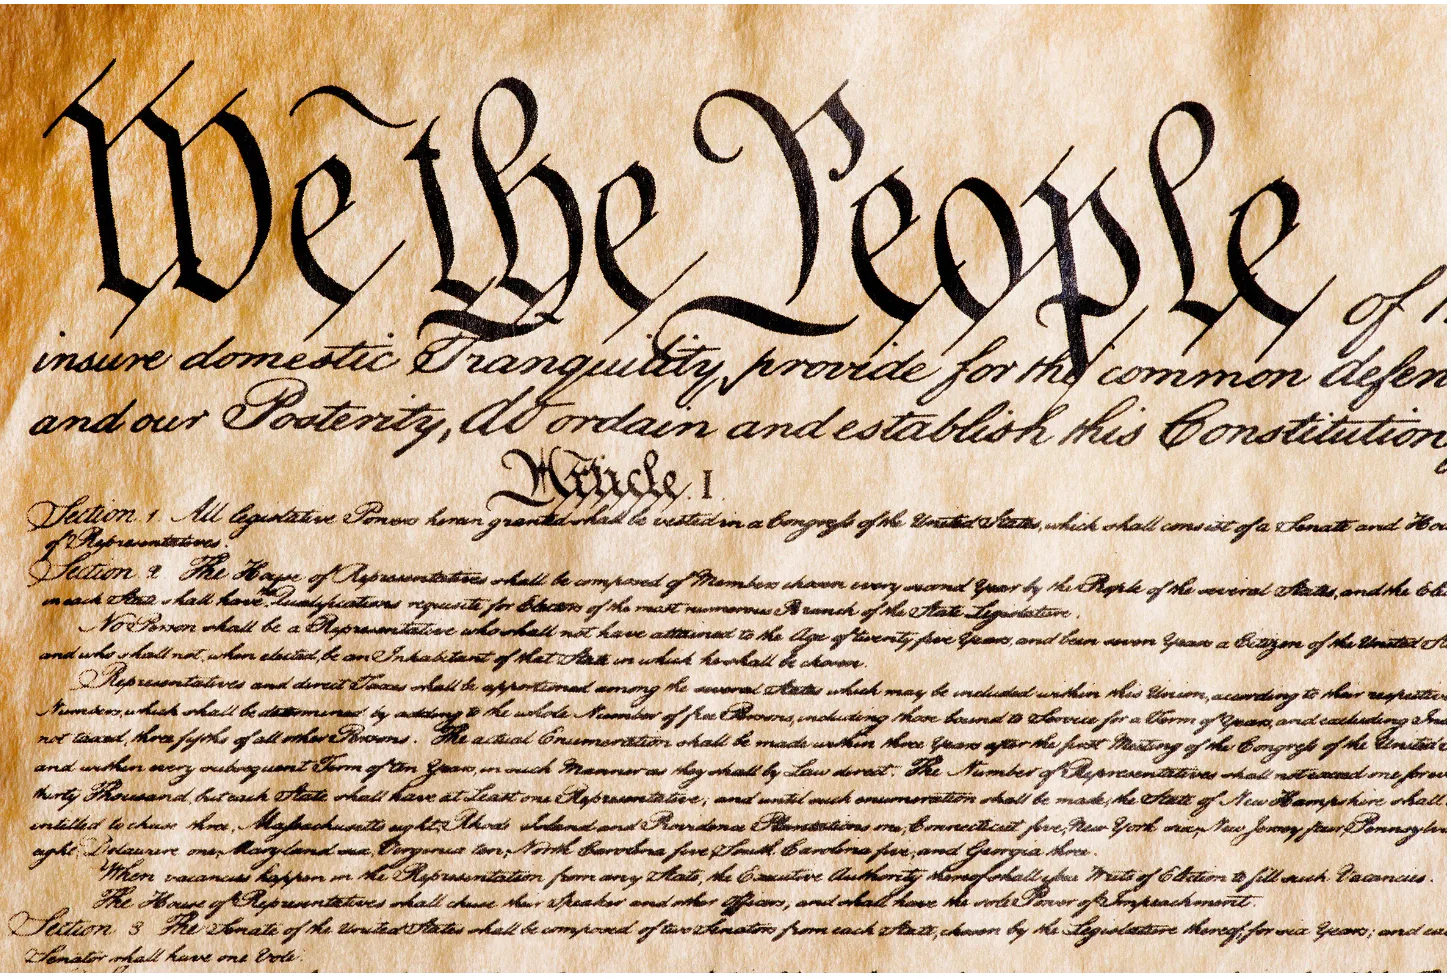 We the People of
insure domestic Tranquility, provide for the common defen
and our Posterity, do ordain and establish this Constitution
Article. I.
Section. 1. All legislative Powers herein granted shall be vested in a Congress of the United States, which shall consist of a Senate and Hou
of Representatives.
Section. 2. The House of Representatives shall be composed of Members chosen every second Year by the People of the several States, and the Ele
in each State shall have the Qualifications requisite for Electors of the most numerous Branch of the State Legislature.
No Person shall be a Representative who shall not have attained to the Age of twenty five Years, and been seven Years a Citizen of the United St
and who shall not, when elected, be an Inhabitant of that State in which he shall be chosen.
Representatives and direct Taxes shall be apportioned among the several States which may be included within this Union, according to their respective
Numbers, which shall be determined by adding to the whole Number of free Persons, including those bound to Service for a Term of Years, and excluding Ind
not taxed, three fifths of all other Persons. The actual Enumeration shall be made within three Years after the first Meeting of the Congress of the United
and within every subsequent Term of ten Years, in such Manner as they shall by Law direct. The Number of Representatives shall not exceed one for ev
thirty Thousand, but each State shall have at Least one Representative; and until such enumeration shall be made, the State of New Hampshire shall
entitled to chuse three, Massachusetts eight, Rhode Island and Providence Plantations one, Connecticut five, New York six, New Jersey four, Pennsylv
eight, Delaware one, Maryland six, Virginia ten, North Carolina five, South Carolina five, and Georgia three.
When vacancies happen in the Representation from any State, the Executive Authority thereof shall issue Writs of Election to fill such Vacancies.
The House of Representatives shall chuse their Speaker and other Officers; and shall have the sole Power of Impeachment.
Section. 3. The Senate of the United States shall be composed of two Senators from each State, chosen by the Legislature thereof, for six Years; and ea
Senator shall have one Vote.